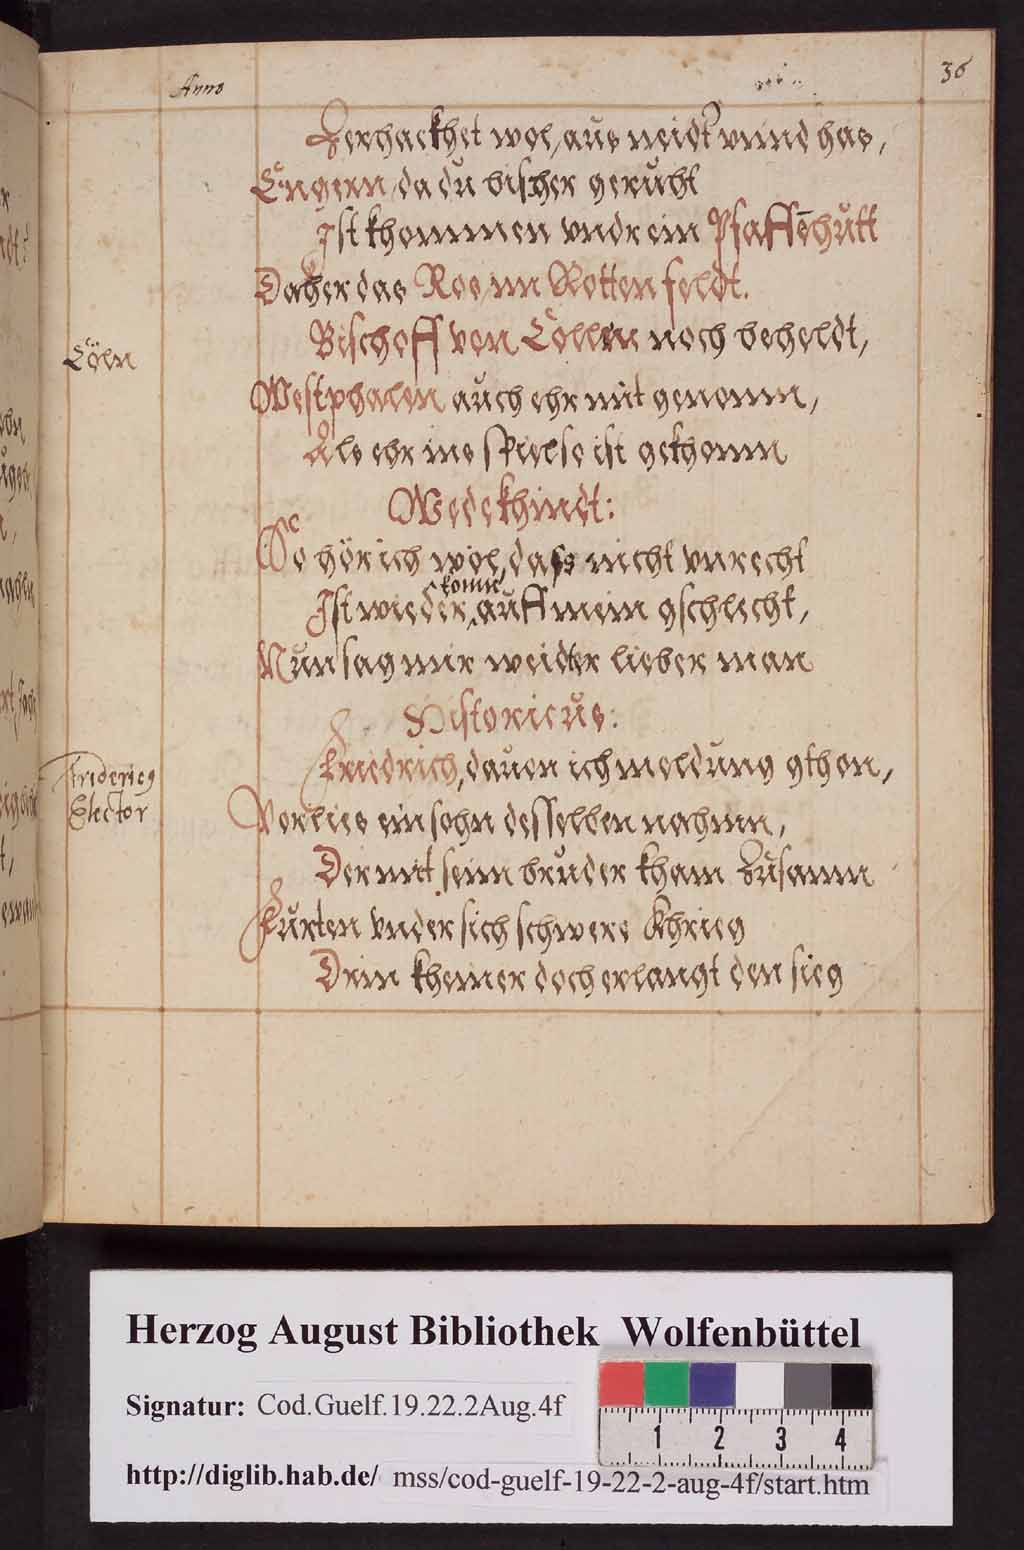 Anno
36
Zerhackhet wol, aus neidt vnnd has,
Engern, da du bischer gerucht
Ist khommen vndr ein Pfaffēhutt
Daher das Ros im Rotten feldt.
Bischoff von Cölln noch beheldt,
Cöln
Westphalen auch ehr mit genomn,
Als ehr ins spielse ist gekhomn
Wedekhindt:
So hör ich wol, dass nicht vnrecht
komn
Ist wieder auff mein gschlecht,
Nun sag mir weidter lieber man
Historicus:
Friedrich, dauen ich meldung gthon,
Friderieg
Elector
Verlies ein sohn desselben nahmn,
Der mit seim bruder kham zusamn
Furten vnder sich schwere Khrieg
Drin kheiner doch erlangt den sieg
Herzog August Bibliothek Wolfenbüttel
Signatur: Cod.Guelf.19.22.2Aug.4f
1 2 3 4
http://diglib.hab.de/ mss/cod-guelf-19-22-2-aug-4f/start.htm